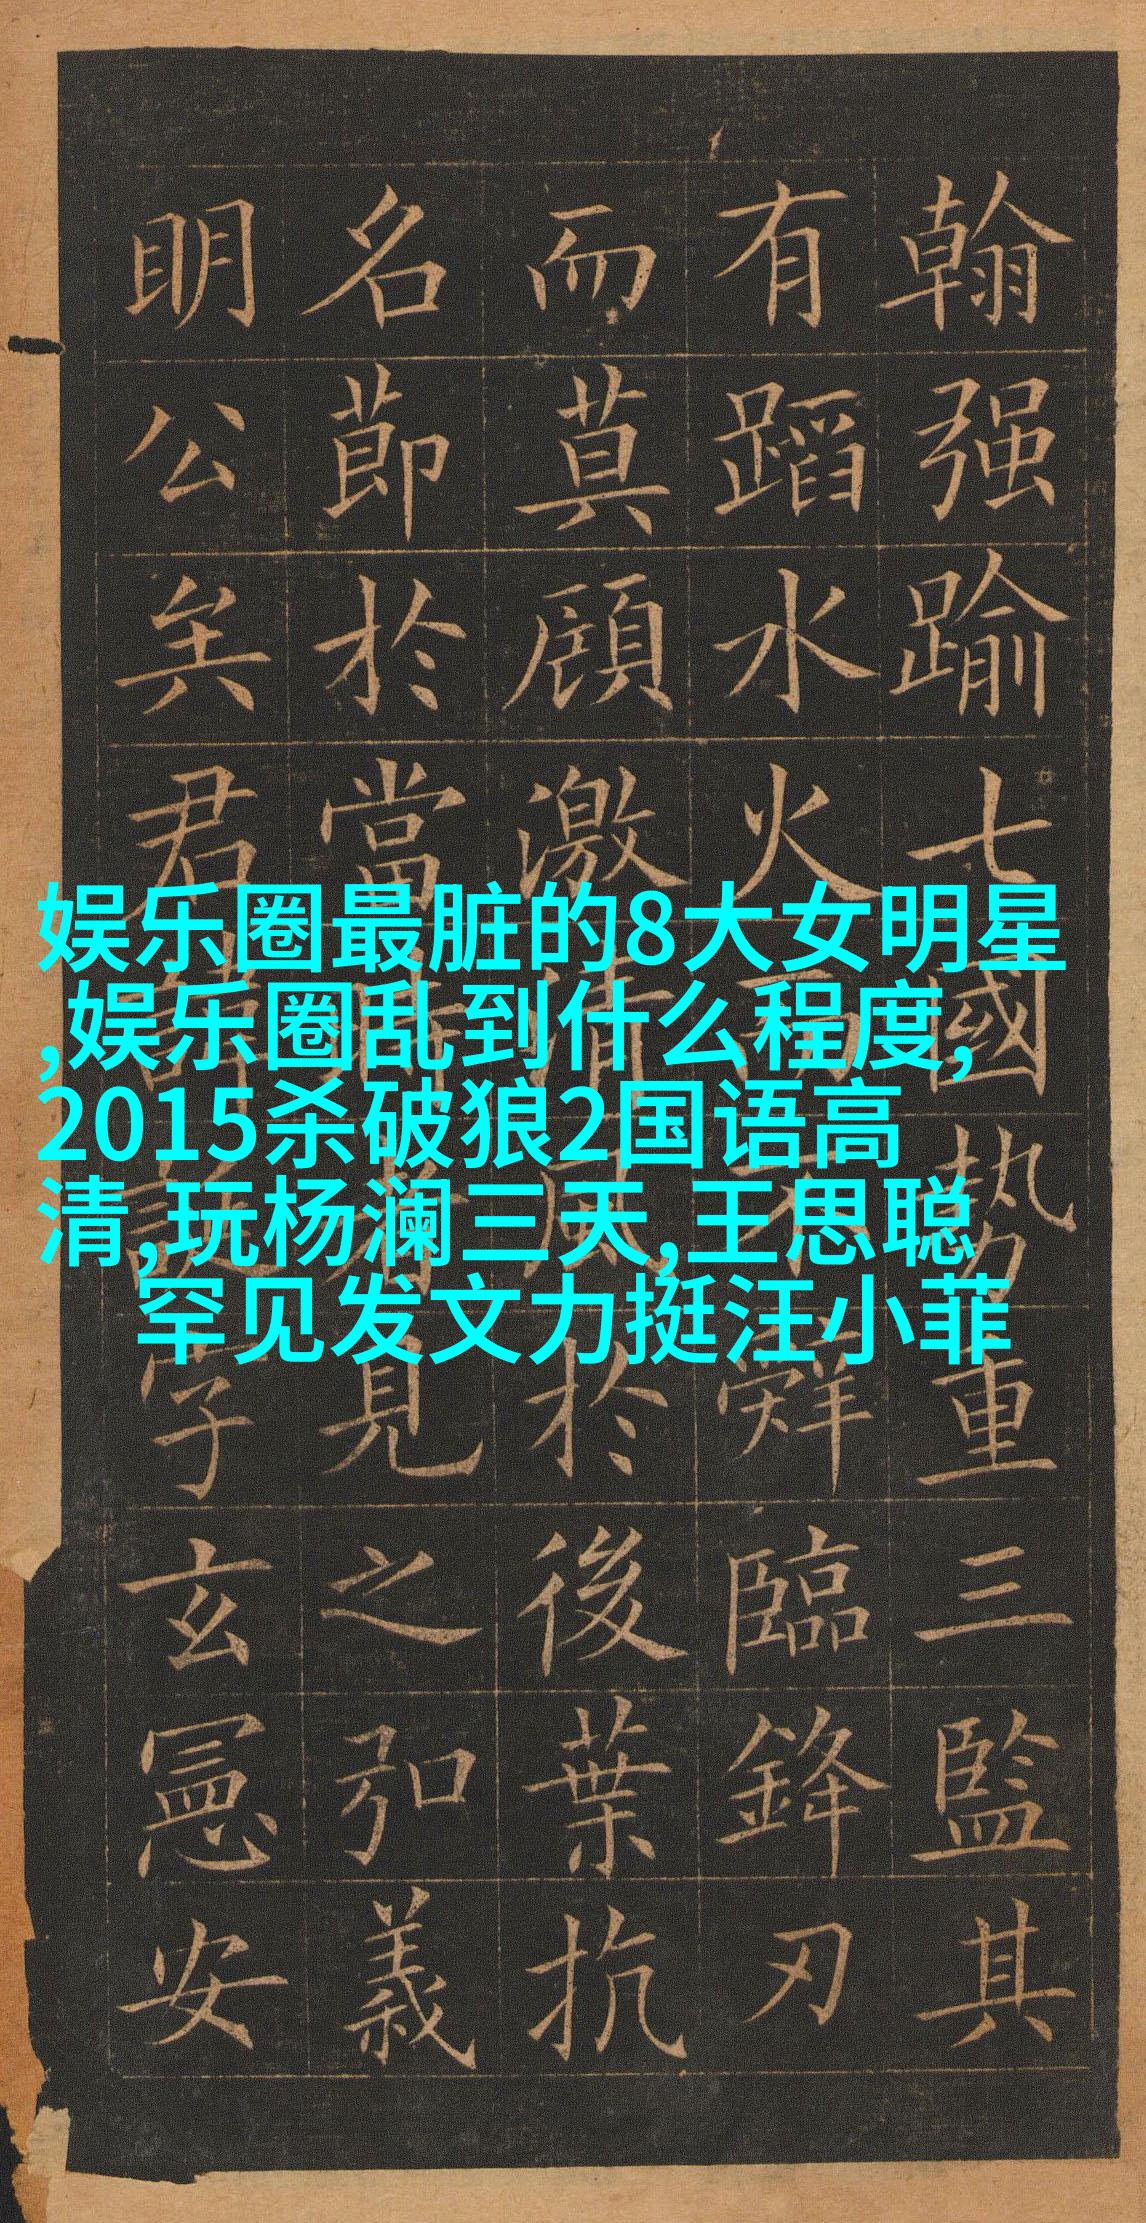 翰强踰七國勢重三監其
有蹈水火而不辭臨鋒刃
而莫顧激清風於後葉抗
名節於當時者見之弘義
明公矣君諱誕字玄憲安
娱乐圈最脏的8大女明星
,娱乐圈乱到什么程度,
2015杀破狼2国语高
清,玩杨澜三天,王思聪
罕见发文力挺汪小菲